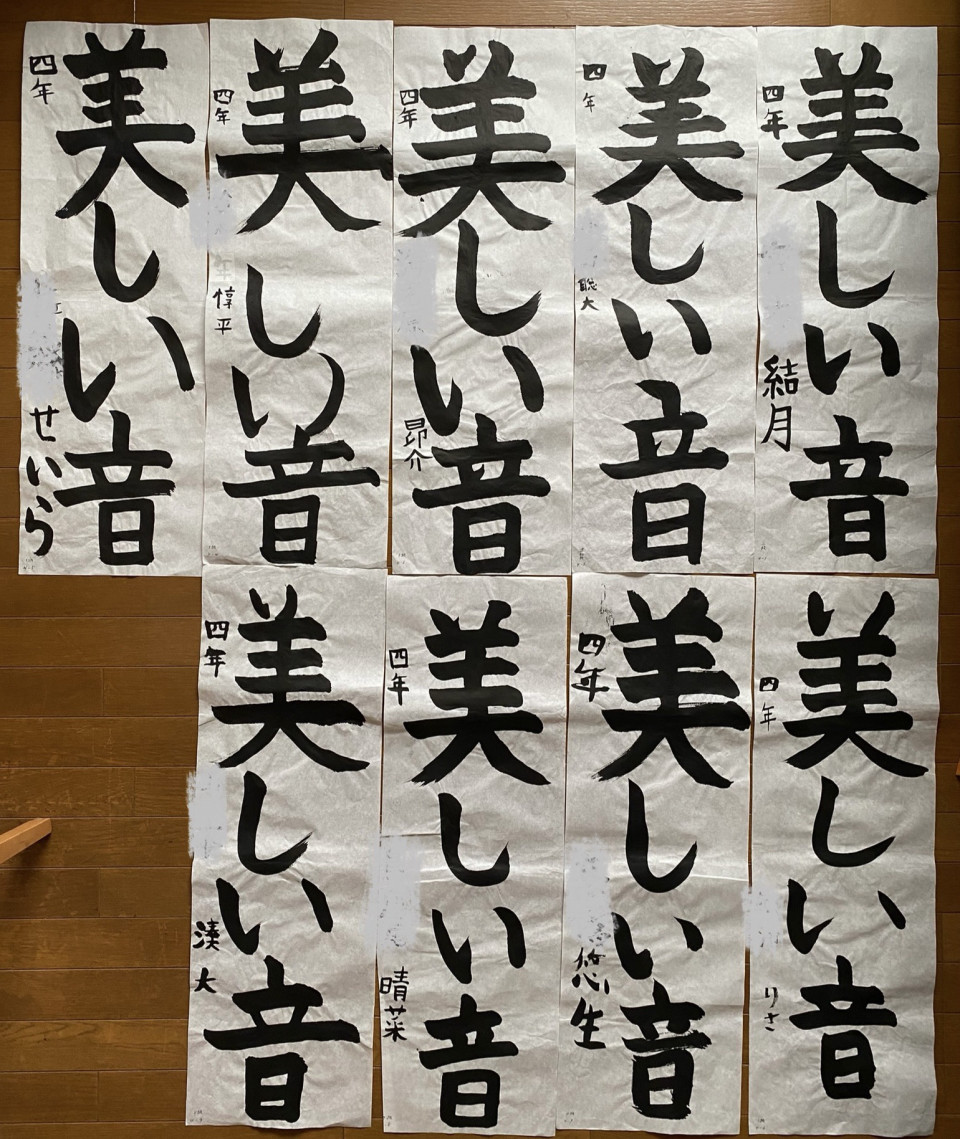 美しい音
四年
結月
美しい音
四年
聡大
美しい音
四年
昂介
美しい音
四年
惇平
美しい音
四年
せいら
美しい音
四年
りさ
美しい音
四年
悠生
美しい音
四年
晴菜
美しい音
四年
湊大